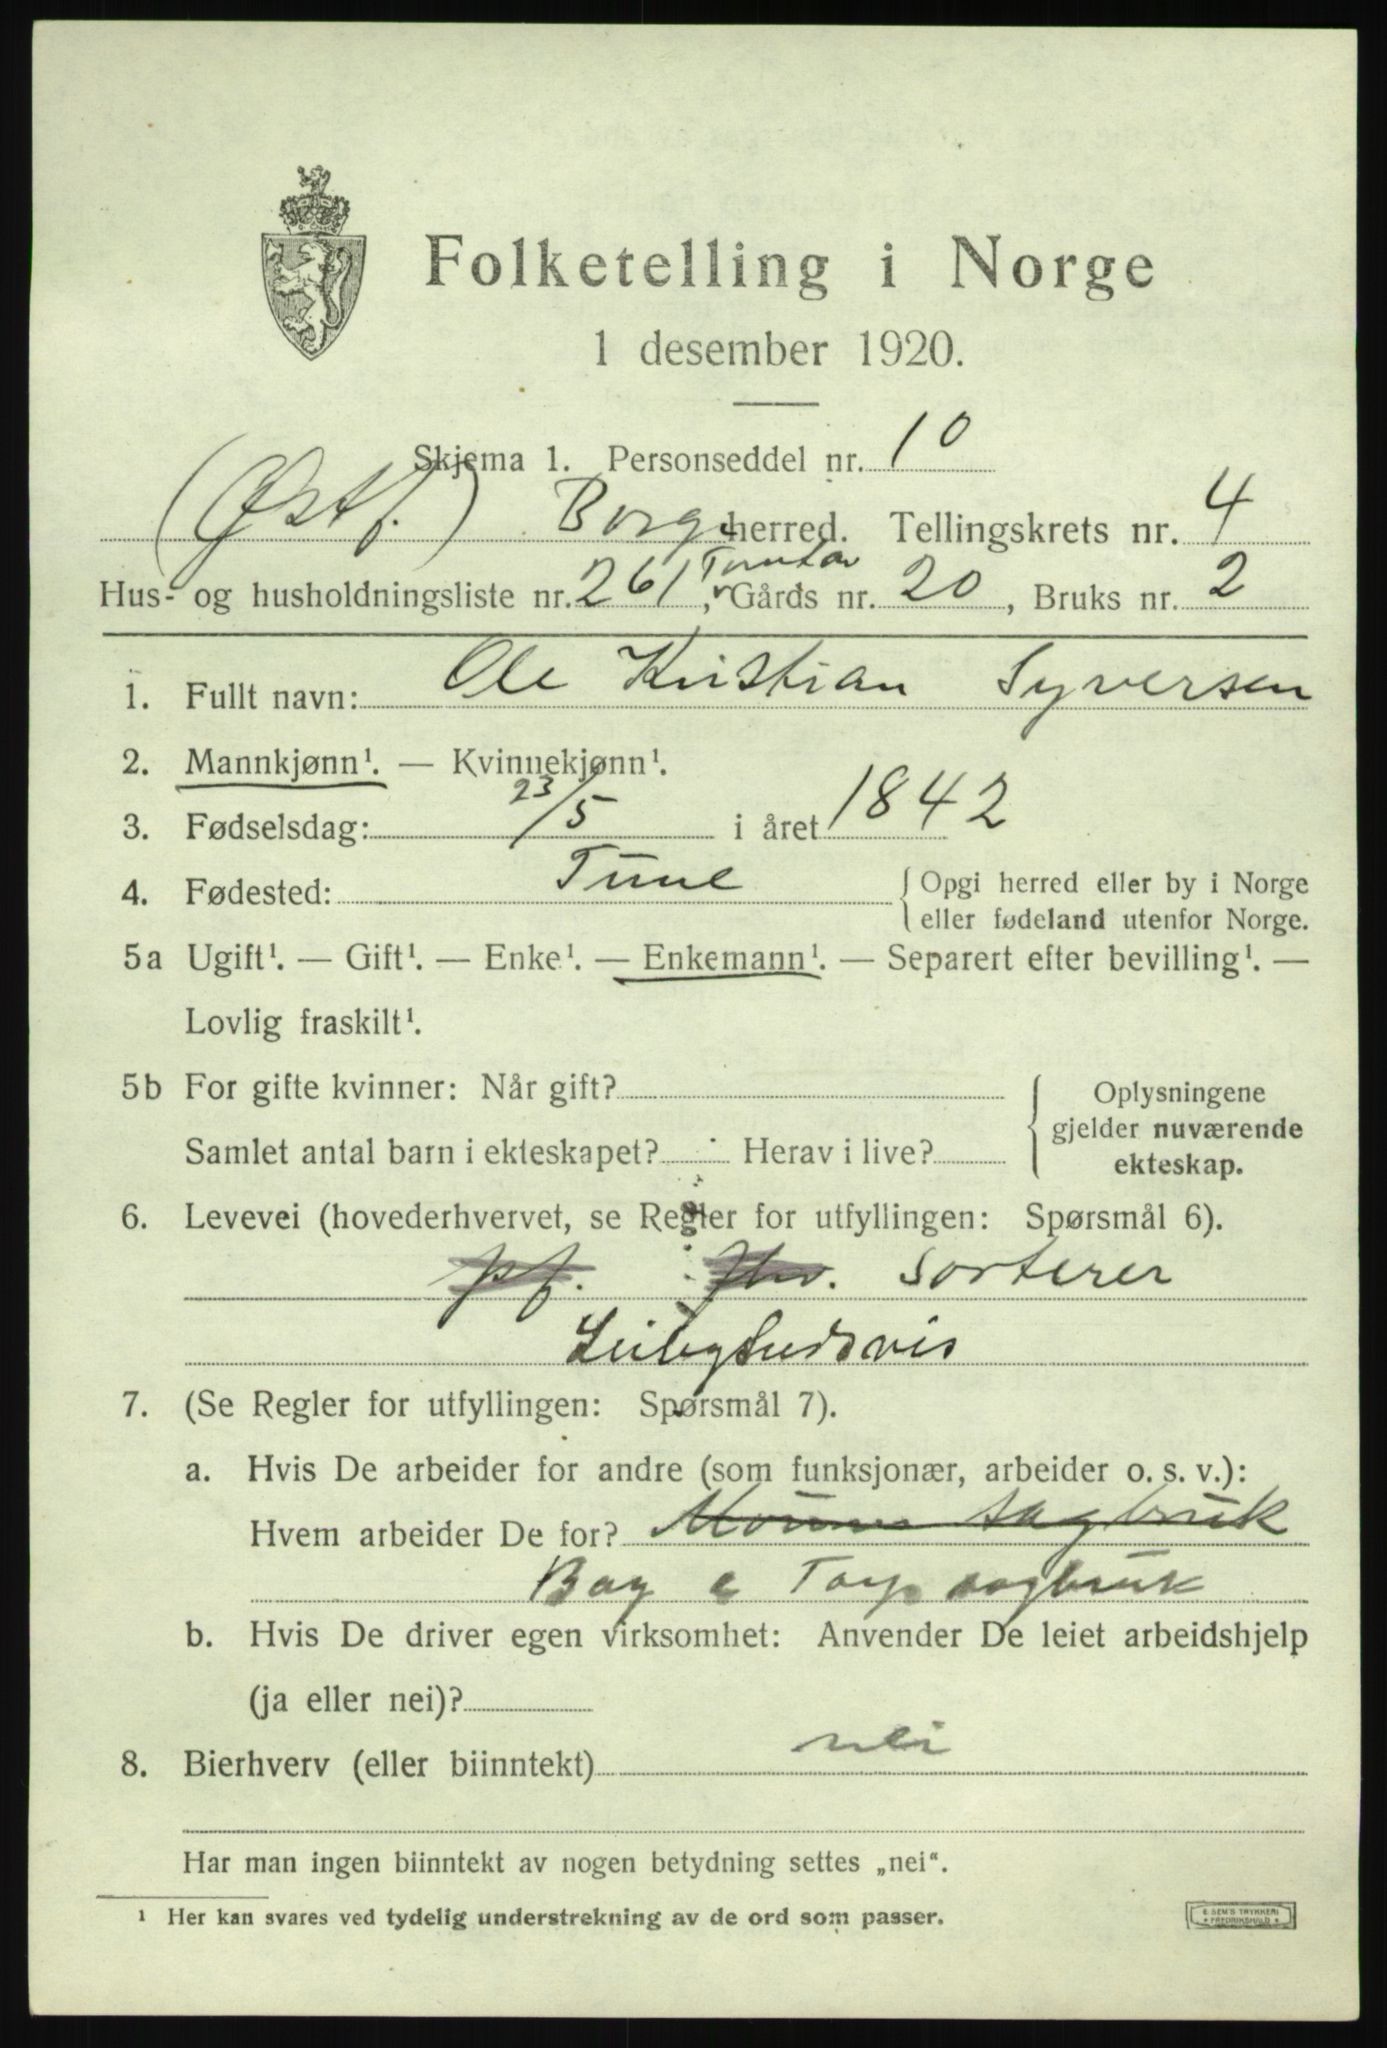 Folketelling i Norge
1 desember 1920.
Skjema 1. Personseddel nr. 10
(Østf.) Borge herred. Tellingskrets nr. 4
Hus- og husholdningsliste nr. 261, Gårds nr. 20, Bruks nr. 2
1. Fullt navn: Ole Kristian Syversen
2. Mannkjønn¹. — Kvinnekjønn¹.
3. Fødselsdag: 23/5 i året 1842
4. Fødested: Tune {Opgi herred eller by i Norge
eller fødeland utenfor Norge.
5a Ugift¹. — Gift¹. — Enke¹. — Enkemann¹. — Separert efter bevilling¹. —
Lovlig fraskilt¹.
5b For gifte kvinner: Når gift? { Oplysningene
gjelder nuværende
Samlet antal barn i ekteskapet? Herav i live?
ekteskap.
6. Levevei (hovederhvervet, se Regler for utfyllingen: Spørsmål 6).
pf. Sorterer
7. (Se Regler for utfyllingen: Spørsmål 7).
a. Hvis De arbeider for andre (som funksjonær, arbeider o. s. v.):
Hvem arbeider De for? sagbruk
Torp sagbruk
b. Hvis De driver egen virksomhet: Anvender De leiet arbeidshjelp
(ja eller nei)?
8. Bierhverv (eller biinntekt) nei
Har man ingen biinntekt av nogen betydning settes „nei“.
¹ Her kan svares ved tydelig understrekning av de ord som passer.
E. SEM'S TRYKKERI
* FREDRIKSHALD *